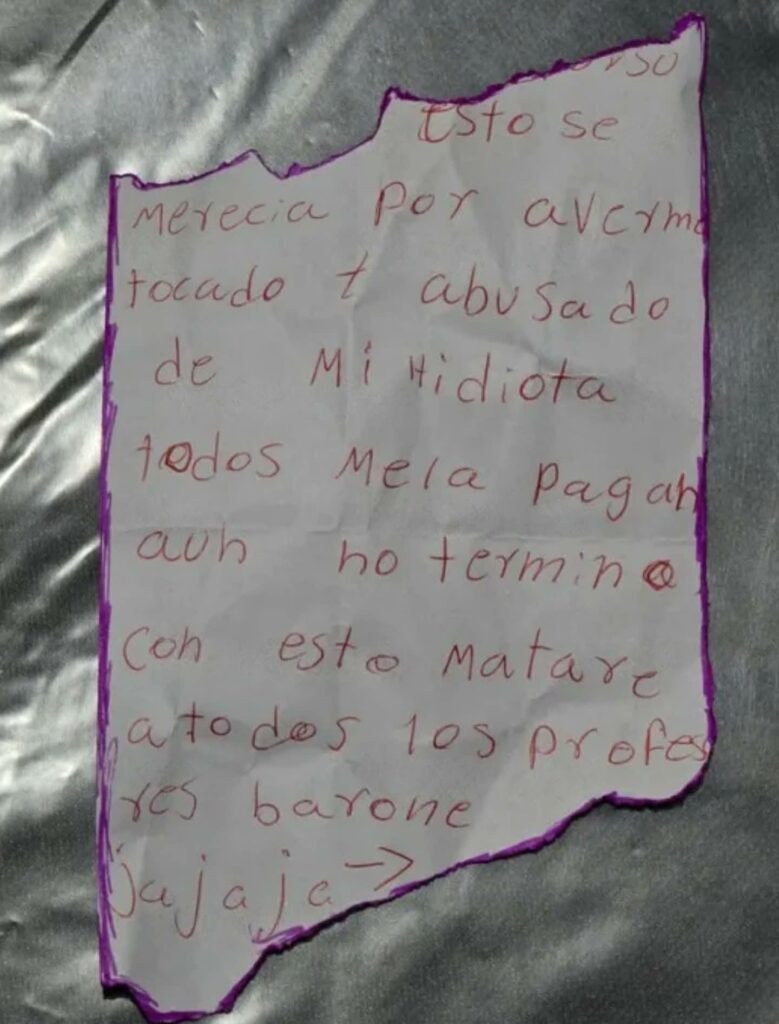 Esto se
merecia por averme
tocado t abusado
de Mi Hidiota
todos Mela pagan
aun no termino
con esto Matare
atodos los profes
res barone
jajaja →